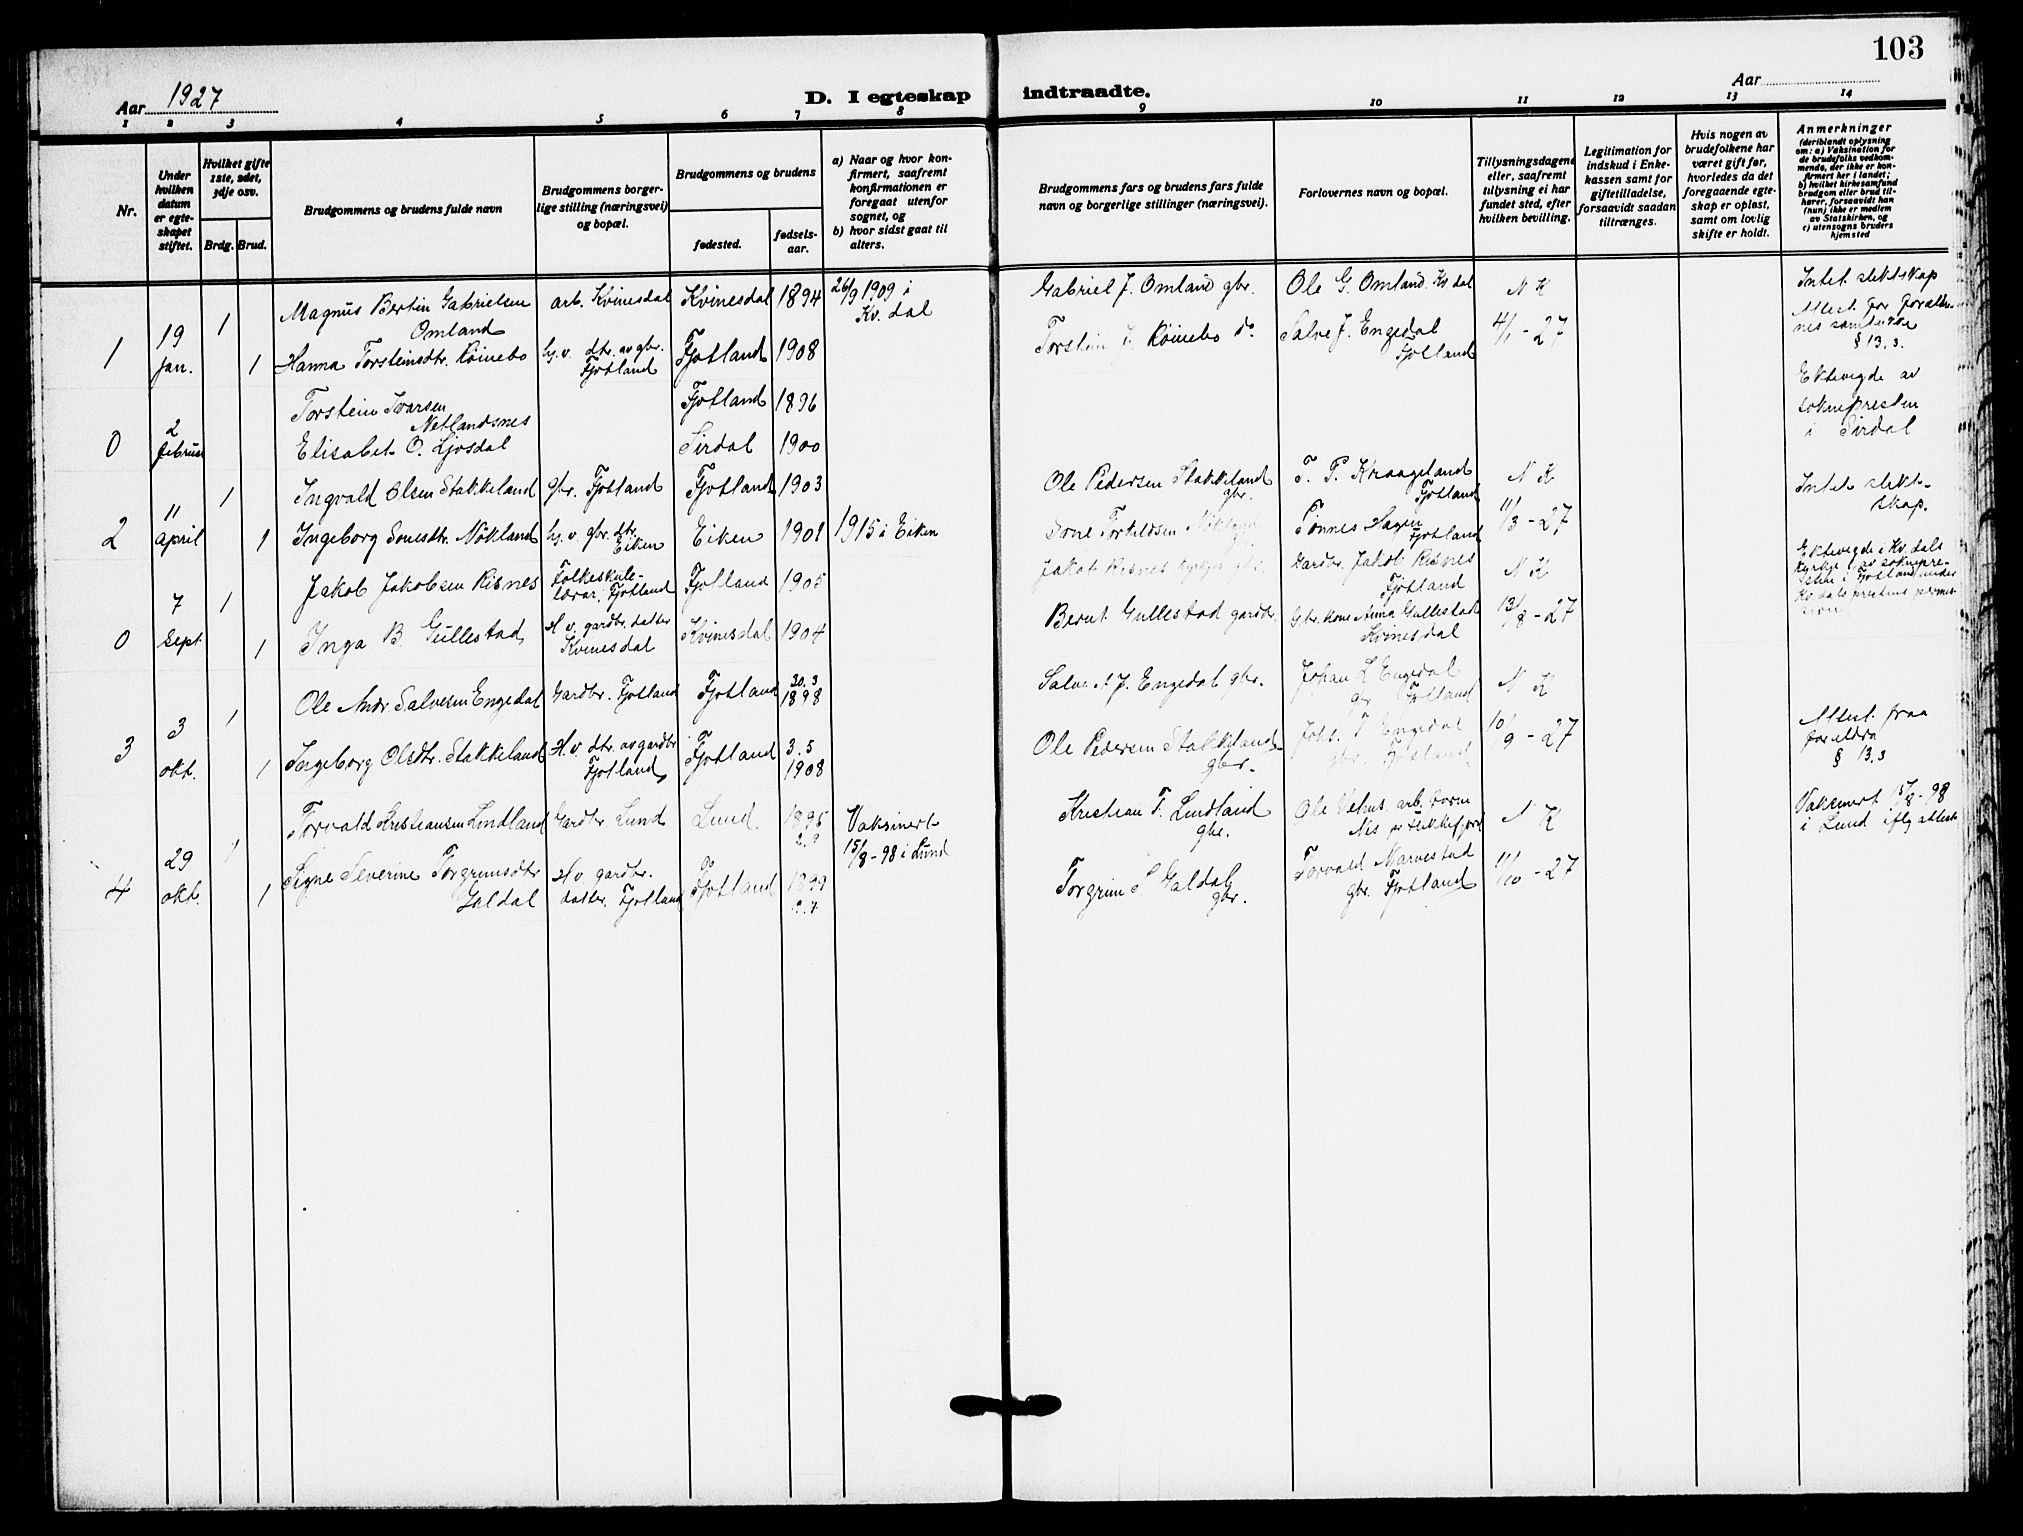 103
Aar 1927
D. I egteskap indtraadte.
Aar
1 2 3 4 5 6 7 8 9 10 11 12 13 14
Nr.
Under hvilken datum er egteskapet stiftet.
Hvilket gifte 1ste, 2det, 3dje osv.
Brdg. Brud.
Brudgommens og brudens fulde navn
Brudgommens borgerlige stilling (næringsvei) og bopæl.
Brudgommens og brudens
fødested.
fødselsaar.
a) Naar og hvor konfirmert, saafremt konfirmationen er foregaat utenfor sognet, og
b) hvor sidst gaat til alters.
Brudgommens fars og brudens fars fulde navn og borgerlige stillinger (næringsvei).
Forlovernes navn og bopæl.
Tillysningsdagene eller, saafremt tillysning ei har fundet sted, efter hvilken bevilling.
Legitimation for indskud i Enkekassen samt for giftetilladelse, forsaavidt saadan tiltrænges.
Hvis nogen av brudefolkene har været gift før, hvorledes da det foregaaende egteskap er opløst, samt om lovlig skifte er holdt.
Anmerkninger
(deriblandt oplysning om: a) Vaksination for de brudefolks vedkommende, der ikke er konfirmert her i landet;
b) hvilket kirkesamfund brudgom eller brud tilhører, forsaavidt han (hun) ikke er medlem av Statskirken, og
c) utensogns bruders hjemsted
1 19 Jan. 1
Magnus Bertin Gabrielsen Omland
arb. Kvinesdal
Kvinesdal 1894
26/9 1909 i Kv. dal
Gabriel J. Omland gbr.
Ole G. Omland Kv dal
N K
Intet slektskap
1 Hanna Torsteinsdtr. Röinebo
hj. v. dtr. av gbr. Fjotland
Fjotland 1908
Torstein Röinebo do
Salve J. Engedal Fjotland
4/1 - 27
Attest for foreldrenes samtykke § 13.3.
0 2 februar
Torstein Ivarsen Netlandsnes
Fjotland 1896
Ektevigde av soknepresten i Sirdal
Elisabet O. Ljosdal
Sirdal 1900
2 11 april 1
Ingvald Olsen Stakkeland
gbr. Fjotland
Fjotland 1903
Ole Pedersen Stakkeland gbr.
T. P. Kraageland Fjotland
N K
Intet slektskap.
1 Ingeborg Sonesdtr. Nökland
hj. v. gbr. dtr. Eiken
Eiken 1901
1915 i Eiken
Tönnes Hagen Fjotland
11/3 - 27
0 7 Sept 1
Jakob Jakobsen Risnes
Folkeskulelærar. Fjotland
Fjotland 1905
Jakob Risnes
Gardbr. Jakob Risnes Fjotland
N K
Ektevigde i Kv. dals kyrkje av soknepresten i Fjotland under Kv dals prestens
1 Inga B. Gullestad
H v. gardbr. datter Kvinesdal
Kvinesdal 1904
Bernt Gullestad gardbr.
Gbr. kone Anna Gullestad Kvinesdal
13/8 - 27
3 3 okt. 1
Ole Andr. Salvesen Engedal
Gardbr. Fjotland
Fjotland 30.3 1898
Salve J. Engedal gbr.
Johan L Engedal gbr Fjotland
N K
1 Ingeborg Olsdtr. Stakkeland
H. v dtr. av gardbr Fjotland
Fjotland 3.5 1908
Ole Pedersen Stakkeland gbr.
Johs. T. Engedal gbr. Fjotland
10/9 - 27
Attest. fraa foreldra § 13.3
4 29 okt. 1
Torvald Kristiansen Lindland
Gardbr Lund
Lund. 1895
Vaksinert 15/8 - 98 i Lund
Kristian T. Lindland gbr.
Ole Vehus. arb.
N K
Vaksinert 15/8 - 98 i Lund iflg attest
1 Signe Severine Torgrimsdtr Galdal
H v gardbr. datter. Fjotland
Fjotland 1899
Torgrim S Galdal gbr.
Torvald Narvestad gbr. Fjotland
11/10 - 27